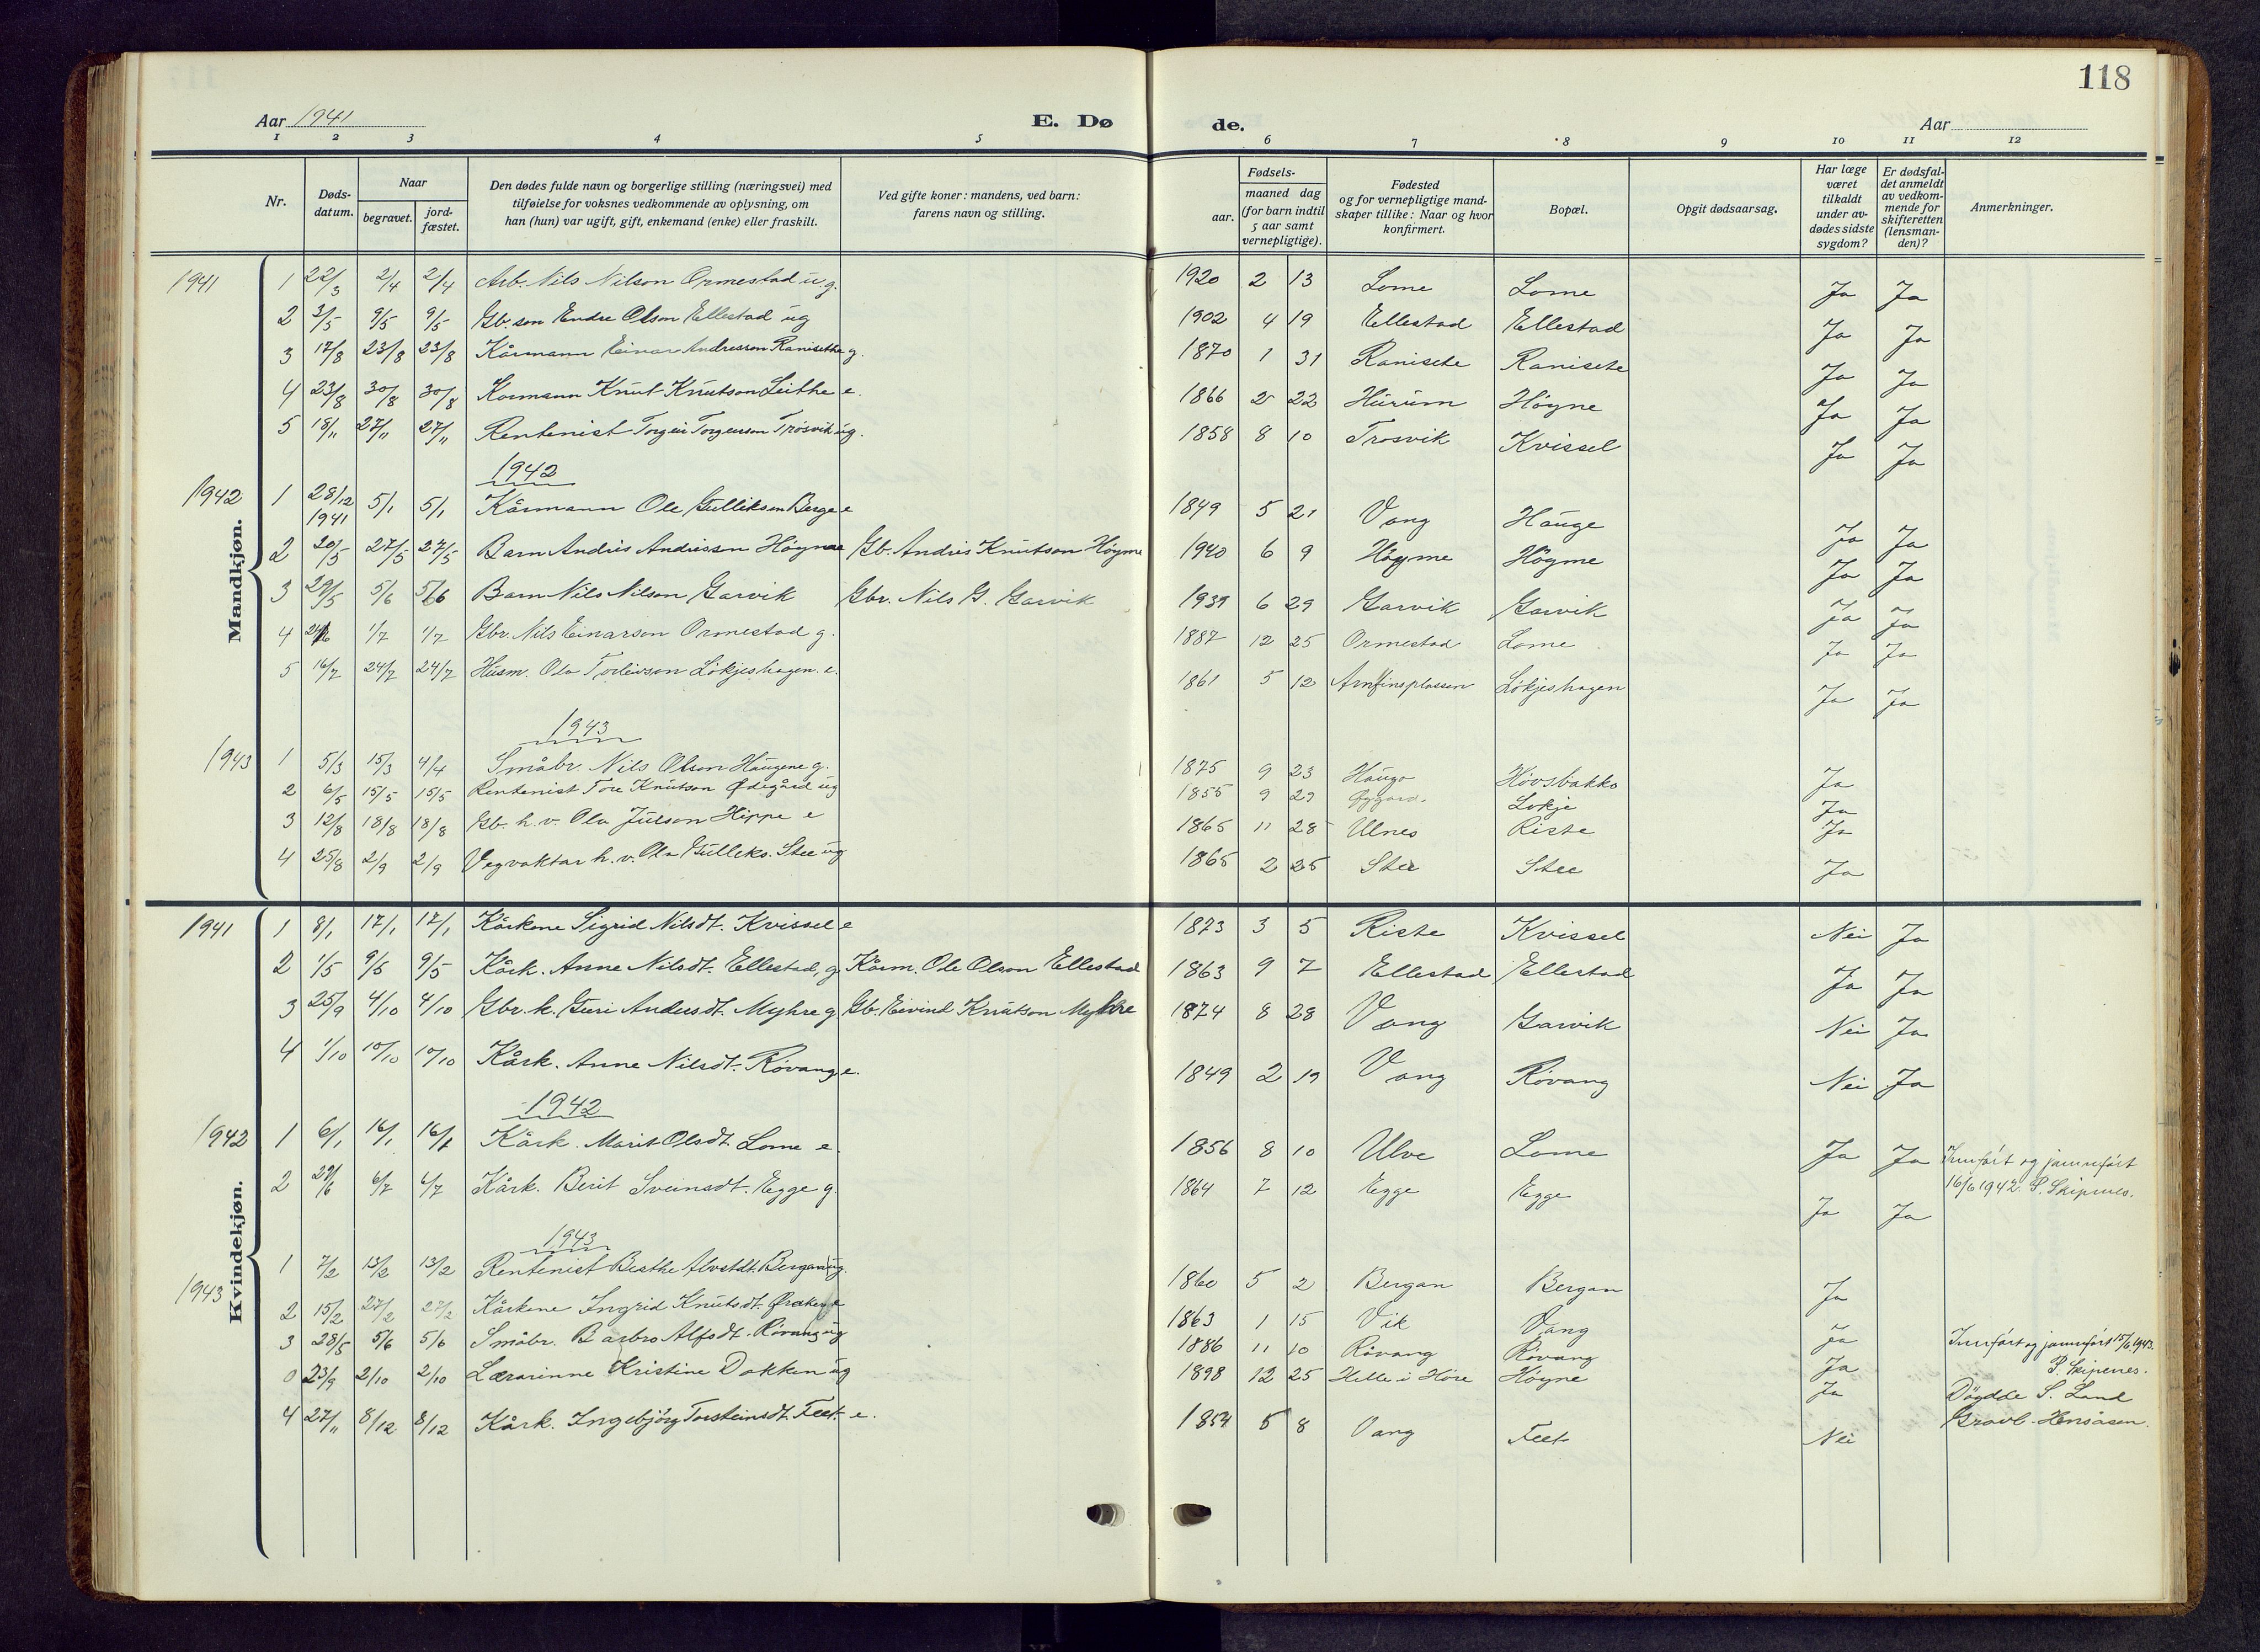 118
Aar 1941 E. Dø de. Aar
1 2 3 4 5 6 7 8 9 10 11 12
Nr. Døds-datum. Naar begravet. jord-fæstet. Den dødes fulde navn og borgerlige stilling (næringsvei) med tilføielse for voksnes vedkommende av oplysning, om han (hun) var ugift, gift, enkemand (enke) eller fraskilt. Ved gifte koner: mandens, ved barn: farens navn og stilling. Fødsels- aar. maaned dag (for barn indtil 5 aar samt vernepligtige). Fødested og for vernepligtige mandskaper tillike: Naar og hvor konfirmert. Bopæl. Opgit dødsaarsag. Har læge været tilkaldt under avdødes sidste sygdom? Er dødsfaldet anmeldt av vedkommende for skifteretten (lensmanden)? Anmerkninger.
Mandkjøn.
1941 1 22/3 2/4 2/4 Arb. Nils Nilson Ormestad ug. 1920 2 13 Lome Lome Ja Ja
2 3/5 9/5 9/5 Gb. son Endre Olson Ellestad ug 1902 4 19 Ellestad Ellestad Ja Ja
3 17/8 23/8 23/8 Kårmann Einar Andresson Ranisethe g. 1870 1 31 Ranisete Ranisete Ja Ja
4 23/8 30/8 30/8 Kormann Knut Knutson Leithe e. 1866 2 22 Hurum Høyne Ja Ja
5 18/11 27/11 27/11 Rentenist Torgeir Torgeirson Trøsvik ug. 1858 8 10 Trosvik Kvissel Ja Ja
1942
1942 1 28/12 1941 5/1 5/1 Kårmann Ole Gulliksen Berge e 1849 5 21 Vang Hauge Ja Ja
2 20/5 27/5 27/5 Barn Andris Andrisson Høyme Gb. Andris Knutson Høyme 1940 6 9 Høyme Høyme Ja Ja
3 29/5 5/6 5/6 Barn Nils Nilson Garvik Gbr. Nils G. Garvik 1939 6 29 Garvik Garvik Ja Ja
4 24/6 1/7 1/7 Gbr. Nils Einarson Ormestad g. 1887 12 25 Ormestad Lome Ja Ja
5 16/7 24/7 24/7 Husm. Ola Torleivson Løkjeshagen. e. 1861 5 12 Arnfinsplassen Løkjeshagen Ja Ja
1943
1943 1 5/3 15/3 4/4 Småbr. Nils Olson Haugene g. 1875 9 23 Haugo Hovsbakko Ja
2 6/5 15/5 15/5 Rentenist Tore Knutson Ødegård ug 1855 9 29 Øygard. Lokje Ja
3 12/8 18/8 18/8 Gb. h.v. Ola Julson Hippe e 1865 11 28 Ulnes Riste Ja
4 25/8 2/9 2/9 Vegvaktar h.v. Ola Gulleks. Stee ug 1865 2 25 Stee Stee Ja
Kvindekjøn.
1941 1 8/1 17/1 17/1 Kårkone Sigrid Nilsdt. Kvissel e 1873 3 5 Riste Kvissel Nei Ja
2 1/5 9/5 9/5 Kårk. Anne Nilsdt. Ellestad, g Kårm. Ole Olson Ellestad 1863 9 7 Ellestad Ellestad Ja Ja
3 25/9 4/10 4/10 Gbr. k. Guri Andersdt. Myhre g Gb. Eivind Knutson Myhre 1874 8 28 Vang Garvik Nei Ja
4 1/10 10/10 10/10 Kårk. Anne Nilsdt. Røvang e. 1849 2 19 Vang Røvang Nei Ja
1942
1942 1 6/1 16/1 16/1 Kårk. Marit Olsdt. Lome e. 1856 8 10 Ulve Lome Ja Ja Innført og jamnført
16/6 1942. P. Skipenes.
2 29/6 6/7 6/7 Kårk. Berit Sveinsdt. Egge g. 1864 7 12 Egge Egge Ja Ja
1943
1943 1 7/2 13/2 13/2 Rentenist Besthe Bergan ug. 1860 5 2 Bergan Bergan Ja
2 15/2 27/2 27/2 Kårkone Ingrid Knutsdt. e 1863 1 15 Vik Vang Ja
3 28/5 5/6 5/6 Småbr. Barbro Alfsdt. Røvang ug 1886 11 10 Røvang Røvang Ja Innført og jamnført 15/6 1943.
P. Skipenes.
0 23/9 2/10 2/10 Lærarinne Kristine Dokken ug 1898 12 25 Helle i Høre Høyne Ja Døydde S. Land
Gravl. Hensåsen.
4 27/11 8/12 8/12 Kårk. Ingebjørg Torsteinsdt. Feet. e. 1854 5 8 Vang Feet Nei